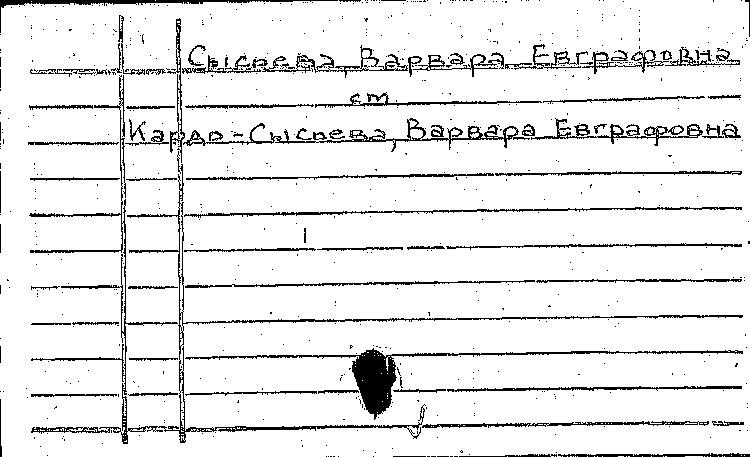 Сысоева, Варвара Евграфовна
см
Кардо-Сысоева, Варвара Евграфовна